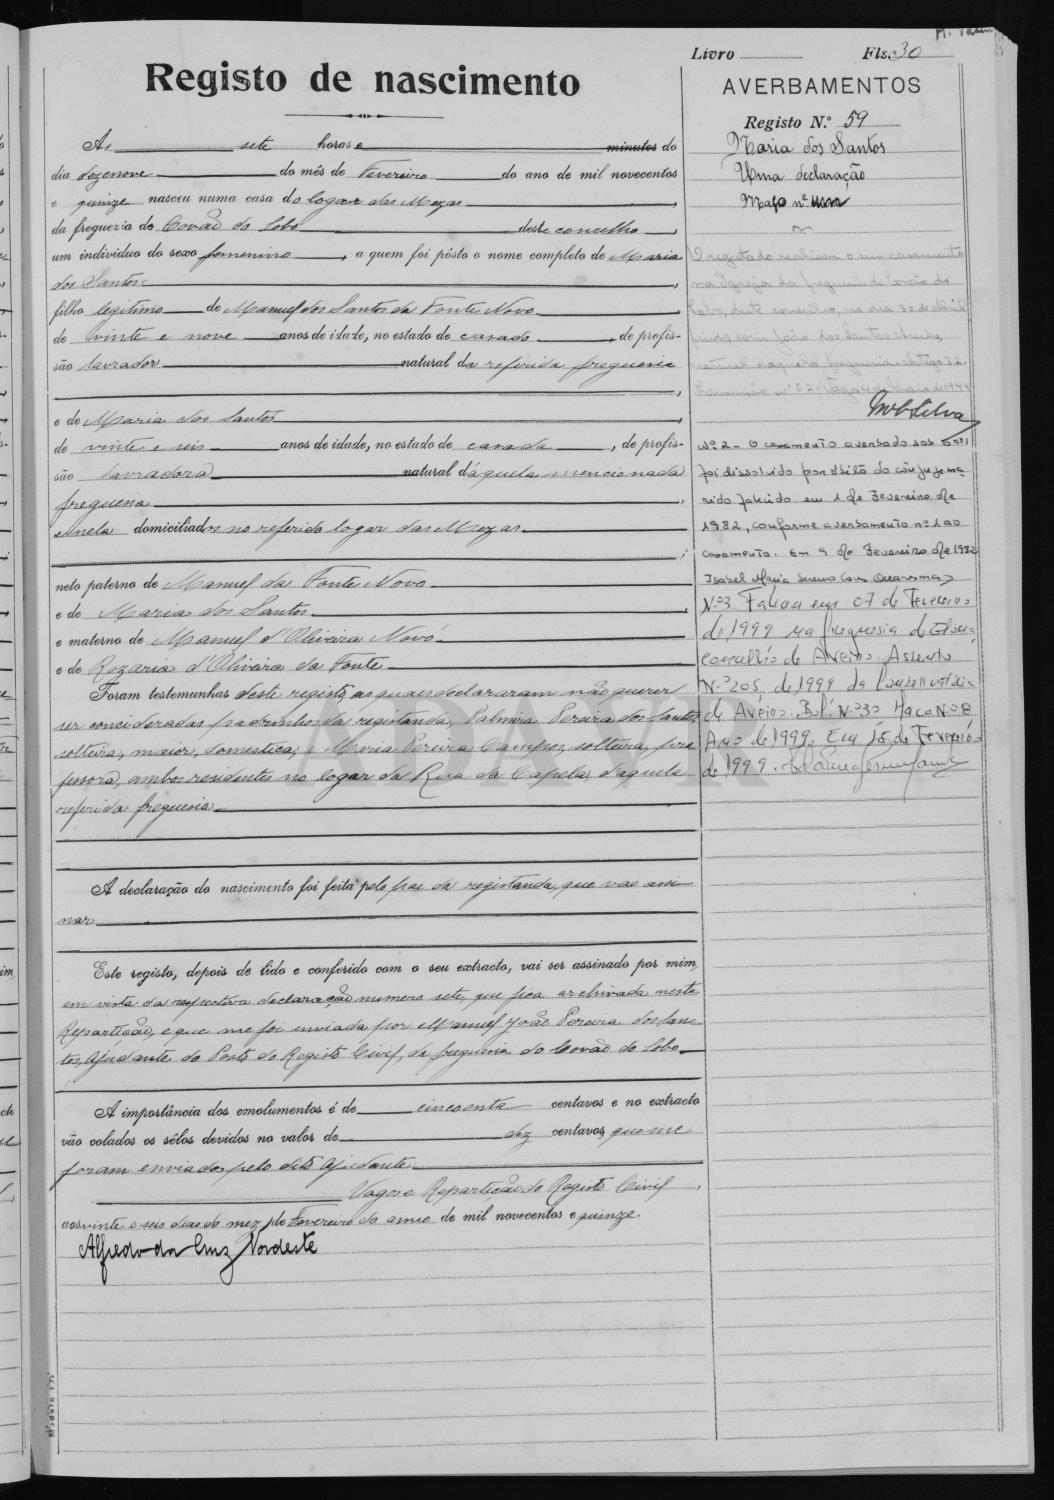 Livro Fls. 30
Registo de nascimento
AVERBAMENTOS
Registo N.º 59
Maria dos Santos
Uma declaração
Maço nº um
Ás sete horas e minutos do
dia dezenove do mês de Fevereiro do ano de mil novecentos
e quinze nasceu numa casa do logar das Mezas
da freguezia do Covão do Lobo deste concelho,
um individuo do sexo femenino, a quem foi pôsto o nome completo de Maria
dos Santos,
filho legitimo de Manuel dos Santos da Fonte Novo
de vinte e nove anos de idade, no estado de casado, de profis-
são lavrador natural da referida freguesia
e de Maria dos Santos
de vinte e seis anos de idade, no estado de casada, de profis-
são lavradora natural d'aquela mencionada
freguesia
e nela domiciliados no referido logar das Mezas
neto paterno de Manuel da Fonte Novo
e de Maria dos Santos
e materno de Manuel d'Oliveira Novo
e de Rozaria d'Oliveira da Fonte
Foram testemunhas deste registo, as quaes declararam não querer
ser consideradas padrinhos da registanda, Palmira Pereira dos Santos,
solteira, maior, domestica, e Maria Pereira Campos, solteira, pro
fessora, ambas residentes no logar da Rua da Capela, daquela
referida freguesia
A declaração do nascimento foi feita pelo pae da registanda, que vae assi-
nar
Este registo, depois de lido e conferido com o seu extracto, vai ser assinado por mim,
em vista da respectiva declaração numero sete, que fica archivada nesta
Repartição, e que me foi enviada por Manuel João Pereira dos San-
tos, Ajudante do Posto do Registo Civil, da freguesia do Covão do Lobo
A importância dos emolumentos é de cincoenta centavos e no extracto
vão colados os sêlos devidos no valor de dez centavos, que me
foram enviados pelo dito Ajudante
Vagos e Repartição do Registo Civil,
aos vinte e seis dias do mez de Fevereiro do anno de mil novecentos e quinze.
Alfredo da Cruz Nordeste
O registado realisou o seu casamento
na Igreja da freguesia de Covão do
Lobo, deste concelho no dia 30 de Abril
com João dos Santos
natural daquela freguesia
de 1949
Silva
Nº 2 - O casamento averbado sob o nº 1
foi dissolvido por óbito do cônjuge ma-
rido falecido em 1 de Fevereiro de
1982, conforme averbamento nº 1 ao
casamento. Em 9 de Fevereiro de 1982
Isabel Maria
Nº3 Faleceu em 07 de Fevereiro
de 1999 na freguesia da Glória
concelho de Aveiro. Assento
Nº 205, de 1999 da Conservatória
de Aveiro. Bol. Nº 30 Maço Nº 8
Ano de 1999. Em 15 de Fevereiro
de 1999.
ADAVR